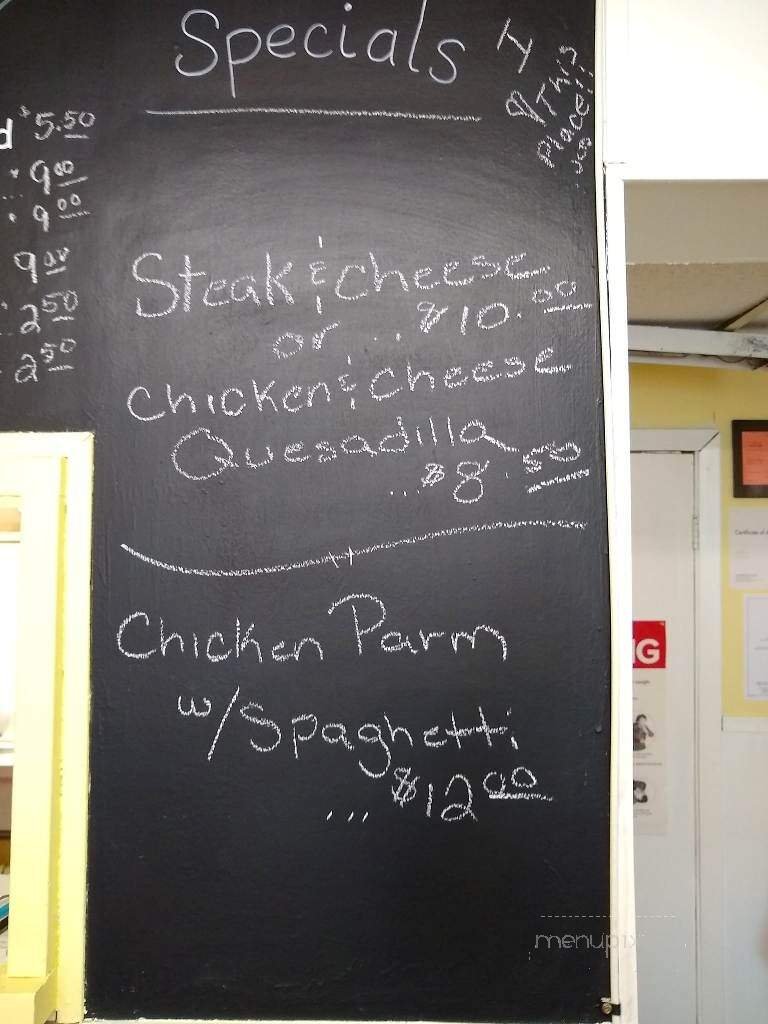 Specials
This
Place!!
d $5.50
9.00
9.00
9.00
2.50
2.50
Steak & cheese
or ...$10.00
Chicken & cheese
Quesadilla
...$8.50
Chicken Parm
w/Spaghetti
...$12.00
NG
menupix